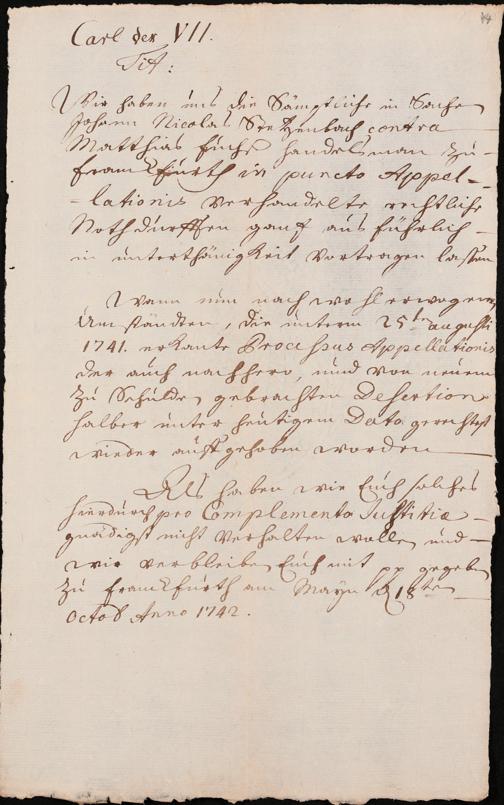 Carl der VII.
Tit:
Wir haben uns die Sämptliche in Sache
Johann Nicolas Stetzenbach contra
Matthias Fuchs handelsman zu
Franckfurth in puncto Appel-
-lationis verhandelte rechtliche
Nothdurfften gantz ausführlich
in unterthänigkeit vortragen lassen
Wann nun nach wohl erwogenen
Umständten, die unterm 25ten augusti
1741. erkante Processus Appellationis
der auch nachhero, und von neuem
zu Schulden gebrachten Desertion
halber unter heutigem Dato gerechtest
wieder auffgehoben worden
Als haben wir Euch solches
hierdurch pro Complemento Justitiæ
gnädigst nicht verhalten wollen und
wir verbleiben Euch mit pp gegeben
zu Franckfurth am Mayn d 18ten
Octob Anno 1742.